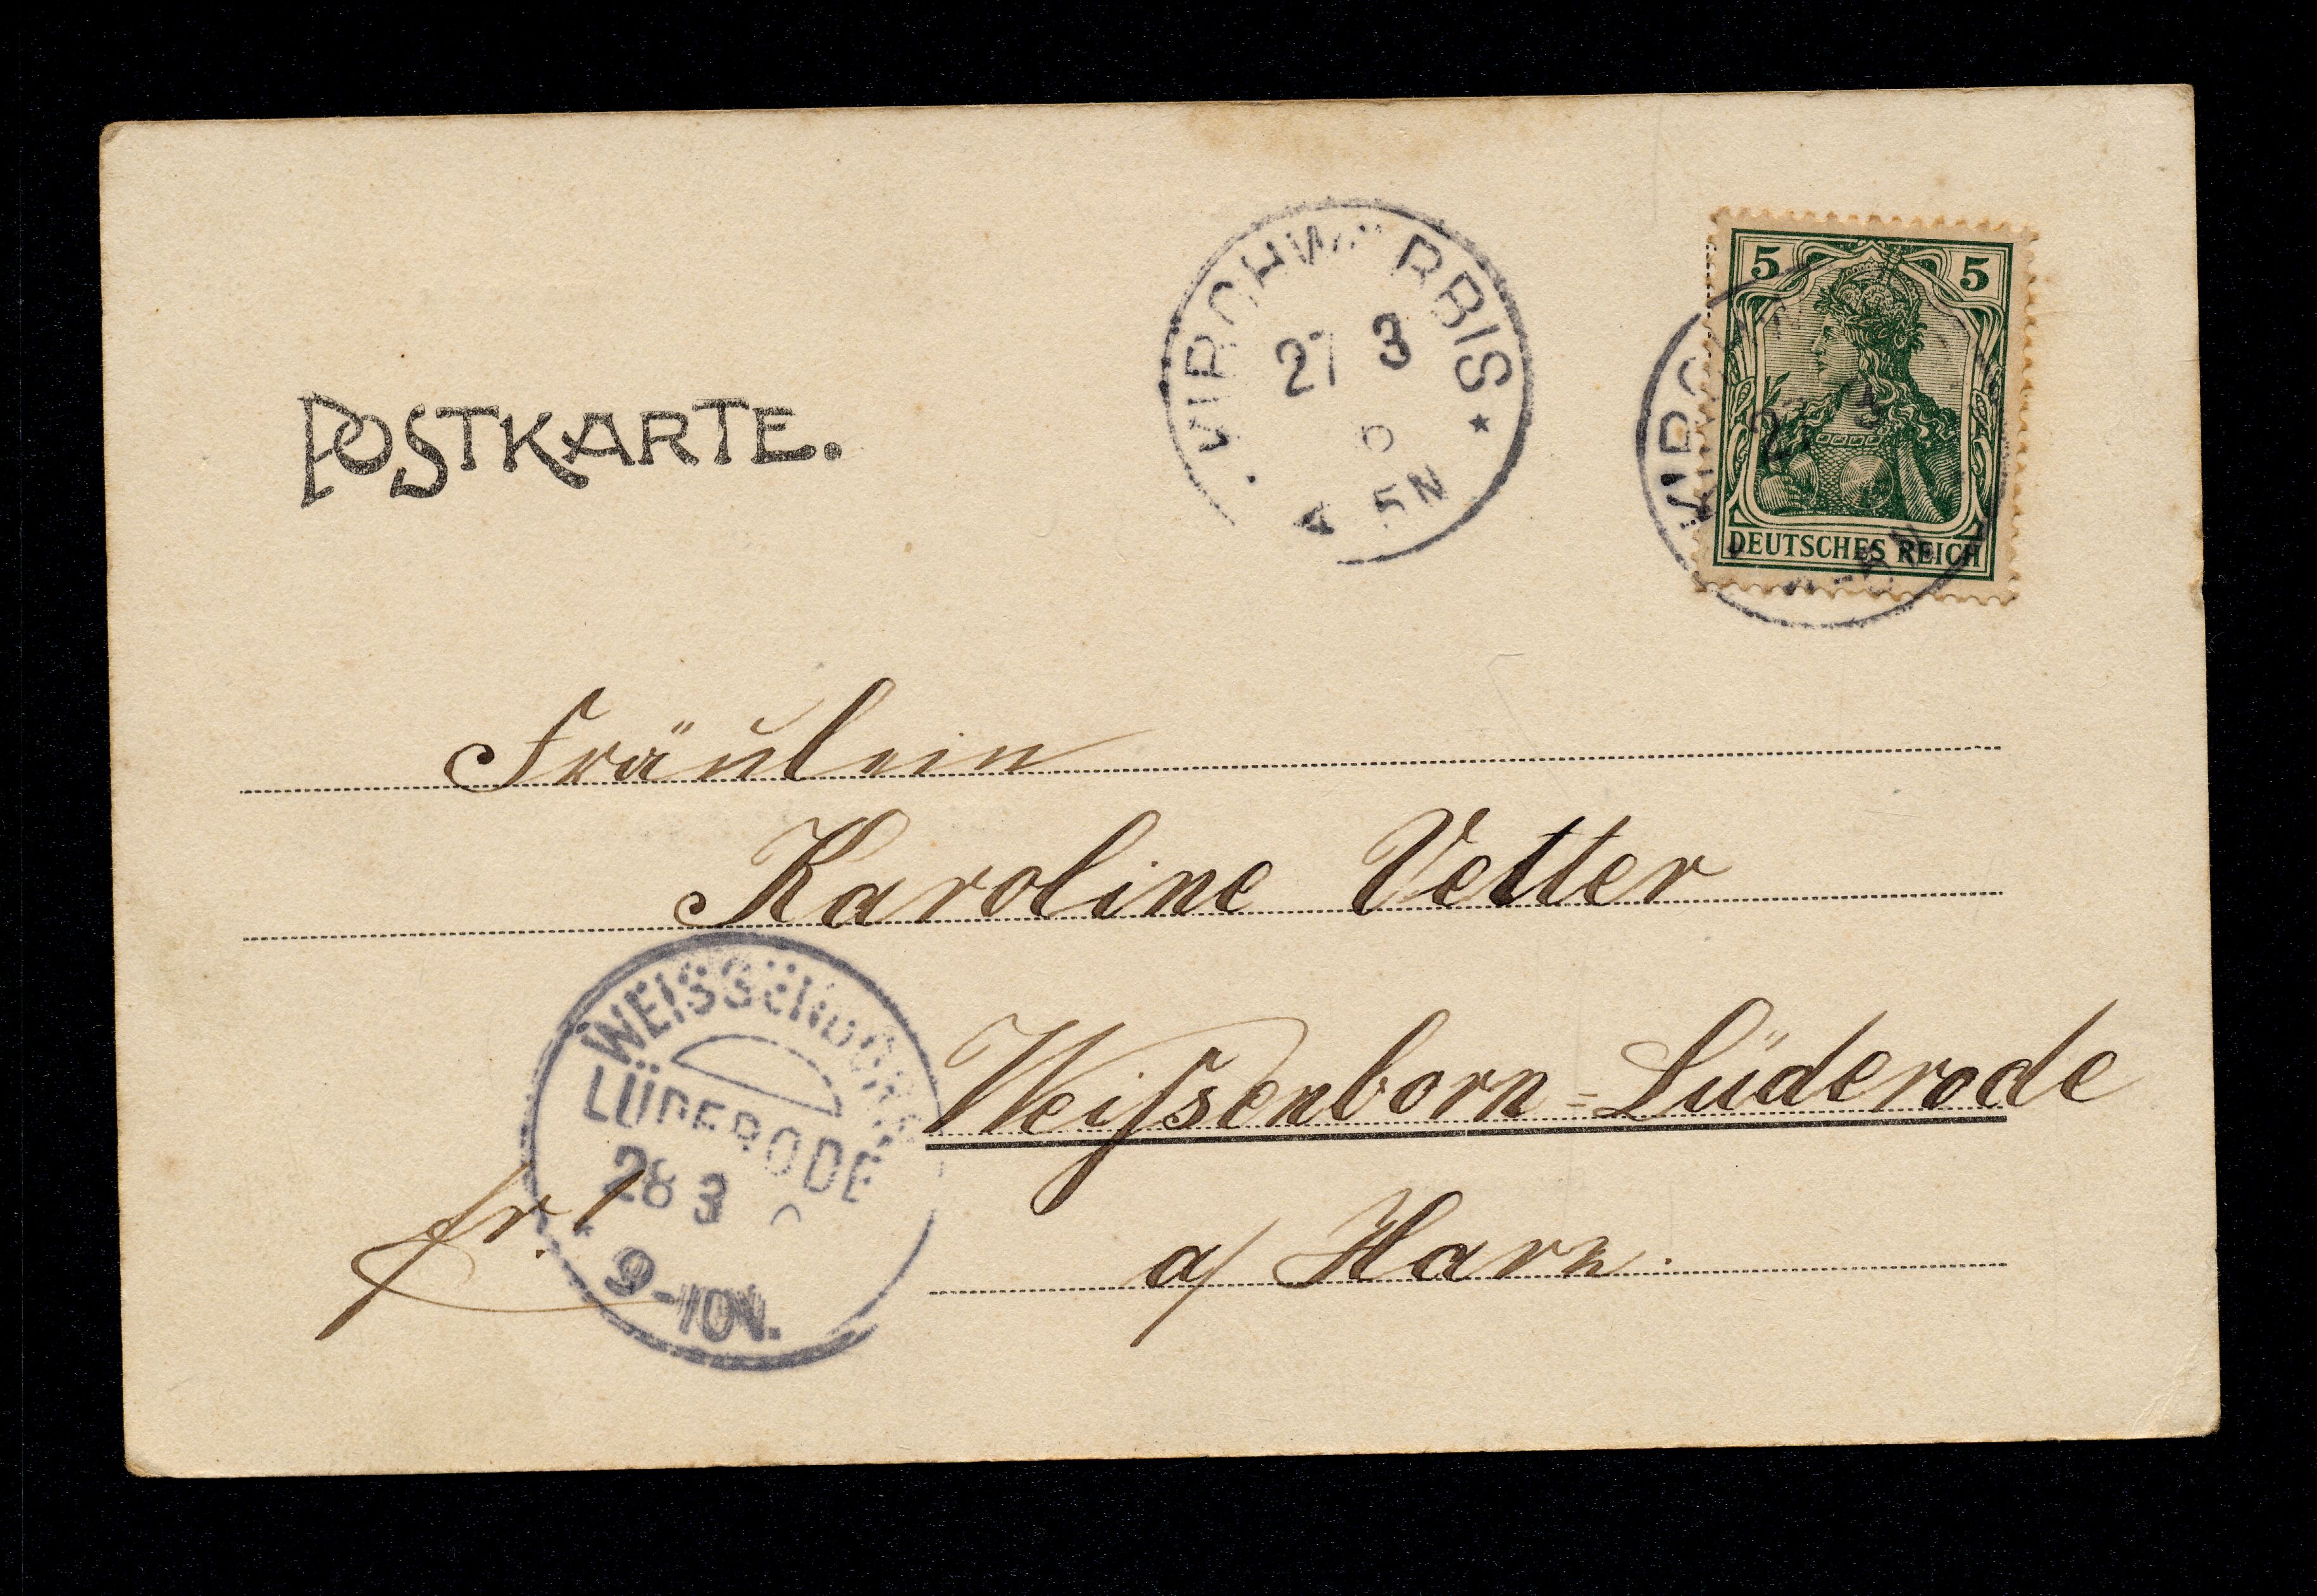 POSTKARTE.
27 3
5N
5 5
DEUTSCHES REICH
27 3
Fräulein
Karoline Vetter
Weißenborn=Lüderode
a/ Harn.
fr.
WEISSENBORN
LÜDERODE
28 3
9-10V.